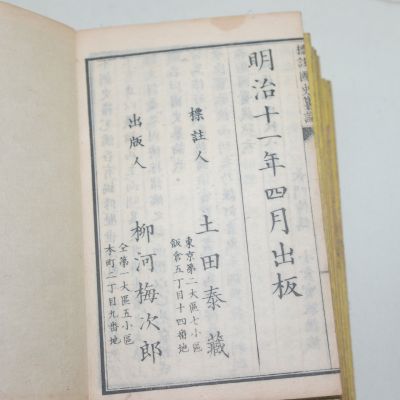 明治十一年四月出板
標註人
東京第二大區七小區
飯倉五丁目十四番地
土田泰藏
出版人
仝第一大區五小區
本町二丁目九番地
柳河梅次郎